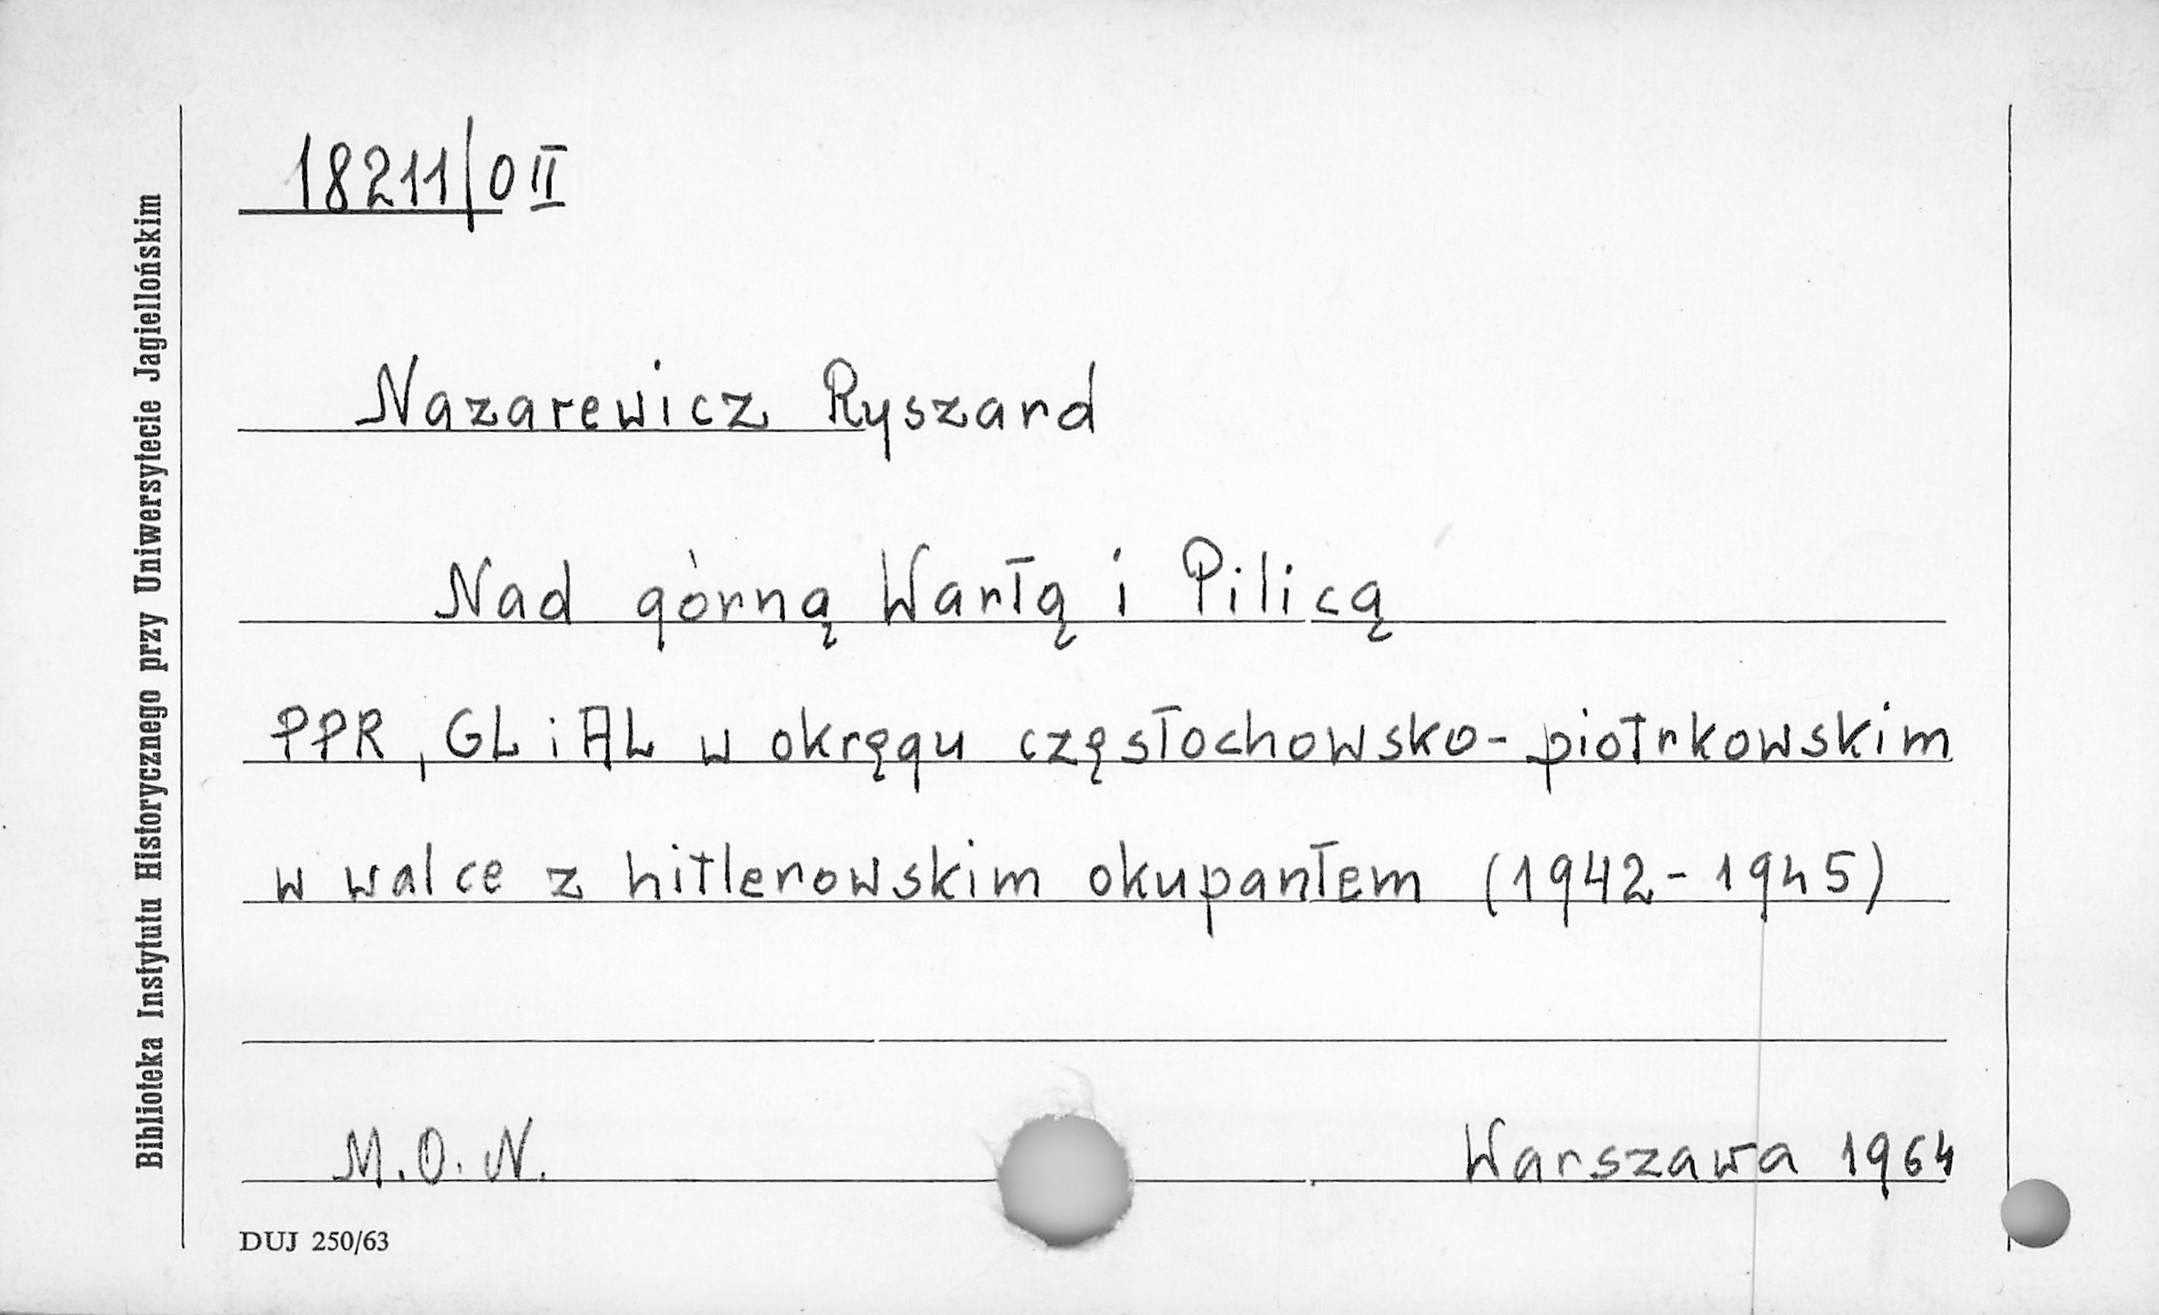 18211/0 II
Nazarewicz Ryszard
Nad górną Wartą i Pilicą
PPR, GL i AL w okręgu częstochowsko-piotrkowskim
w walce z hitlerowskim okupantem (1942-1945)
M.O.N.
Warszawa 1964
DUJ 250/63
Biblioteka Instytutu Historycznego przy Uniwersytecie Jagiellońskim